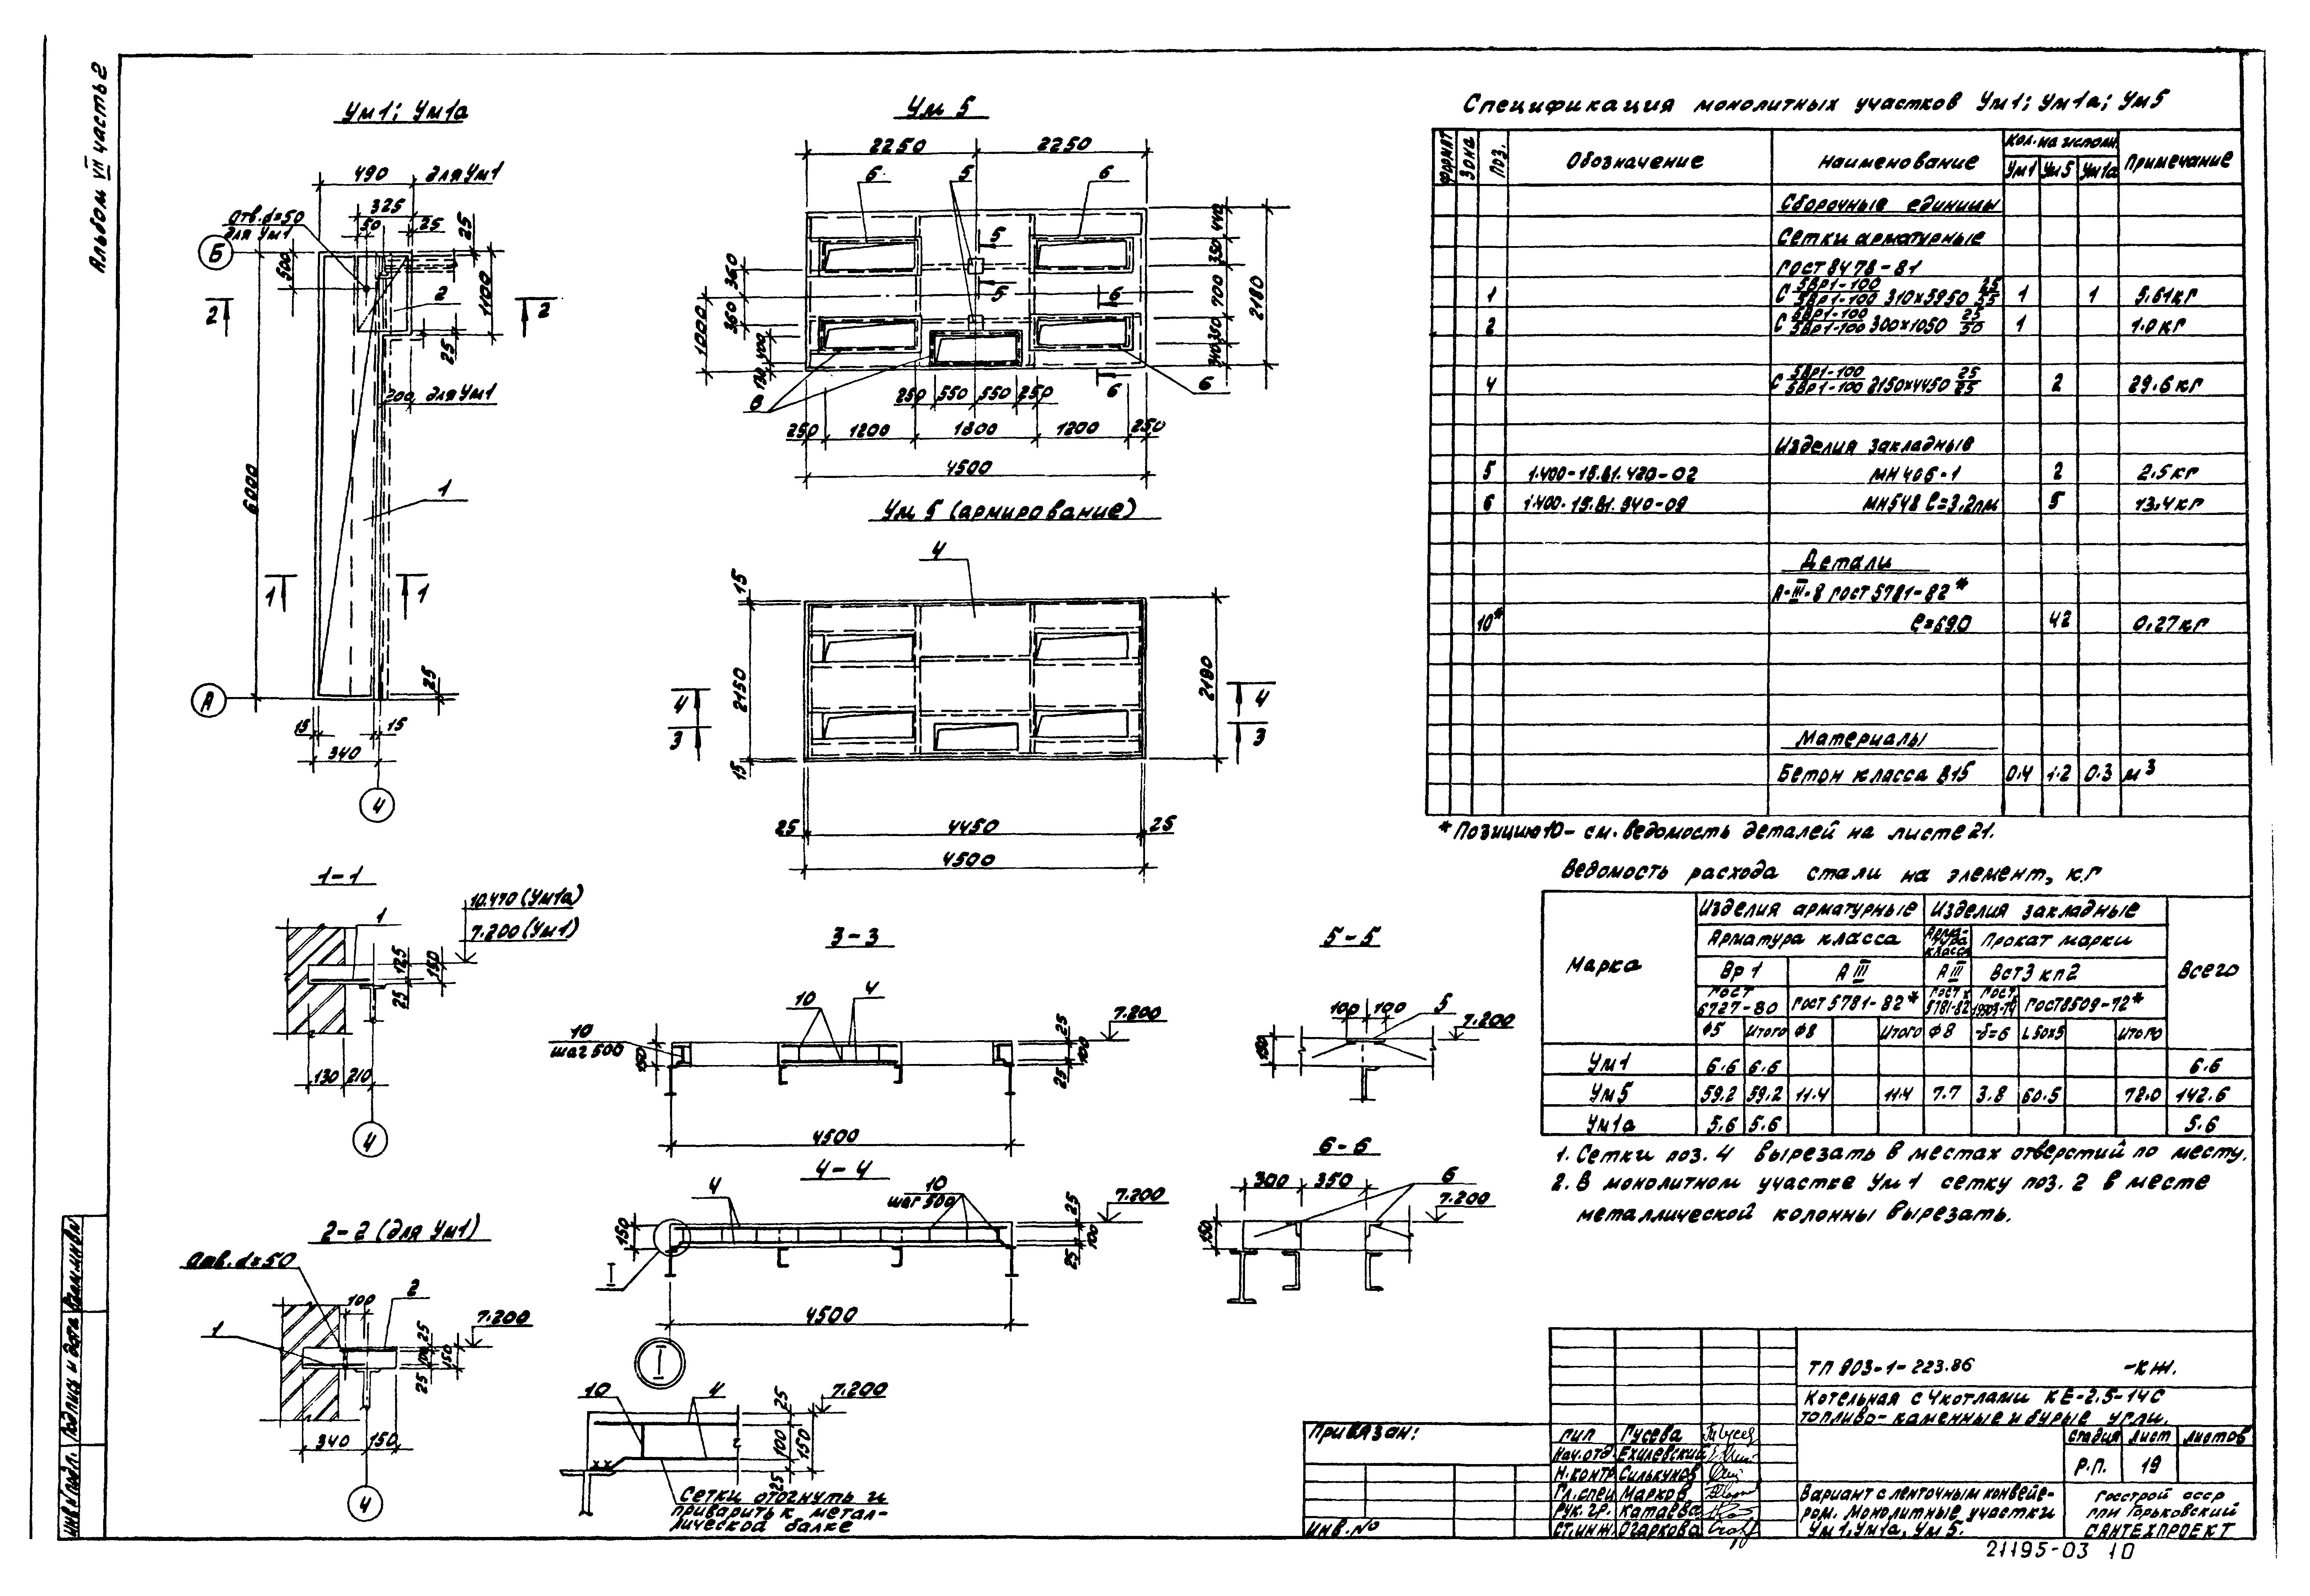 Альбом VII часть 2
Ум1; Ум1а
490 для Ум1
325
Отв. d=50
для Ум1
50
25
25
Б
500
1100
2
2
2
25
200 для Ум1
6000
1
1
1
25
А
15
15
340
4
Ум 5
2250
2250
6
5
6
440
5
350
360
700
2180
5
6
1000
360
350
400
340
6
6
250 550 550 250
250 1200 1800 1200 250
4500
Ум 5 (армирование)
4
15
2150
2180
4
4
3
3
15
25 4450 25
4500
1-1
1
10.470 (Ум1а)
7.200 (Ум1)
125
150
25
130 210
4
2-2 (для Ум1)
Отв. d=50
2
100
1
7.200
25
100
150
25
340 150
4
3-3
10
4
10
шаг 500
7.200
150
25
100
25
4500
4-4
4
10
шаг 500
7.200
150
25
100
25
I
4500
I
10
4
7.200
25
100
150
25
Сетки отогнуть и
приварить к метал-
лической балке
5-5
100 100
5
7.200
150
6-6
300 350
6
7.200
150
Спецификация монолитных участков Ум1; Ум1а; Ум5
Формат Зона Поз. Обозначение Наименование Кол. на исполн. Примечание
Ум1 Ум5 Ум1а
Сборочные единицы
Сетки арматурные
ГОСТ 8478-81
1 С 5Вр1-100/5Вр1-100 310х5950 25/55 1 1 5.61кг
2 С 5Вр1-100/5Вр1-100 300х1050 25/50 1 1.0 кг
4 С 5Вр1-100/5Вр1-100 2150х4450 25/25 2 29.6 кг
Изделия закладные
5 1.400-15.В1.420-02 МН 406-1 2 2.5 кг
6 1.400-15.В1.540-09 МН548 ℓ=3,2пм 5 13,4 кг
Детали
А-III-8 ГОСТ 5781-82*
10* ℓ=690 42 0.27 кг
Материалы
Бетон класса В15 0.4 1.2 0.3 м³
* Позицию 10 - см. ведомость деталей на листе 21.
Ведомость расхода стали на элемент, кг
Марка Изделия арматурные Изделия закладные Всего
Арматура класса Арматура класса Прокат марки
Вр 1 А III А III Вст3 кп2
ГОСТ 6727-80 ГОСТ 5781-82* ГОСТ 5781-82* ГОСТ 19903-74 ГОСТ 8509-72*
Ф5 Итого Ф8 Итого Ф8 -δ=6 L50х5 Итого
Ум1 6.6 6.6 6.6
Ум5 59.2 59.2 11.4 11.4 7.7 3.8 60.5 72.0 142.6
Ум1а 5.6 5.6 5.6
1. Сетки поз. 4 вырезать в местах отверстий по месту.
2. В монолитном участке Ум 1 сетку поз. 2 в месте
металлической колонны вырезать.
Привязан:
Инв. №
ТП 903-1-223.86 -КЖ.
Котельная с 4 котлами КЕ-2.5-14С
топливо - каменные и бурые угли.
ГИП Гусева
Нач. отд. Ехилевский
Н. контр. Силькунов
Гл. спец. Марков
Рук. гр. Катаева
Ст. инж. Огаркова
Стадия Лист Листов
Р.П. 19
Вариант с ленточным конвейе-
ром. Монолитные участки
Ум 1, Ум1а, Ум 5.
Госстрой СССР
ГПИ Горьковский
САНТЕХПРОЕКТ
21195-03 10
Инв. № подл. Подпись и дата Взам. инв. №